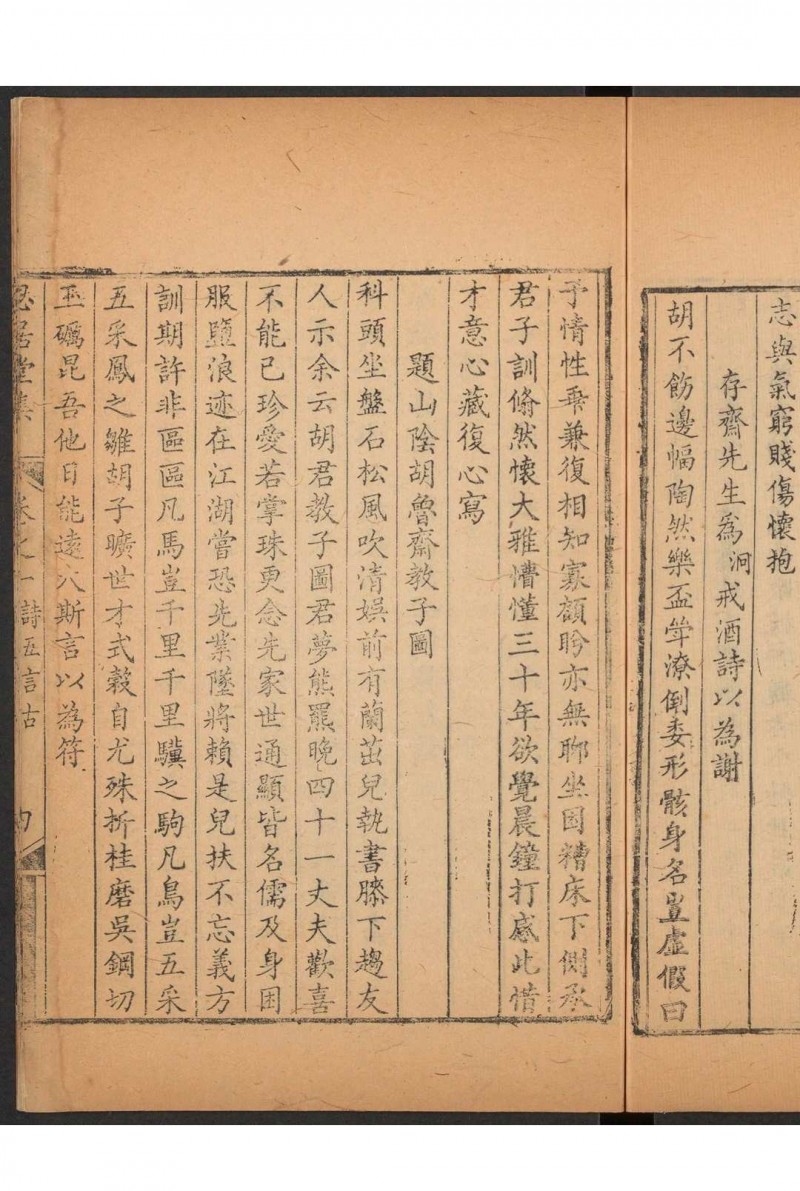 志與氣窮賤傷懷抱
存齋先生為泂戒酒詩以為謝
胡不飭邊幅陶然樂盃斚潦倒委形骸身名豈虛假曰
予惰性乖兼復相知寡顧盻亦無聊坐困糟床下側承
君子訓翛然懷大雅懵懂三十年欲覺晨鐘打感此惜
才意心藏復心寫
題山陰胡魯齋教子圖
科頭坐盤石松風吹清娛前有蘭茁兒執書膝下趨友
人示余云胡君教子圖君夢熊羆晚四十一丈夫歡喜
不能已珍愛若掌珠更念先家世通顯皆名儒及身困
服鹽浪迹在江湖嘗恐先業墜將賴是兒扶不忘義方
訓期許非區區凡馬豈千里千里驥之駒凡鳥豈五采
五采鳳之雛胡子曠世才式穀自尤殊折桂磨吳鋼切
玉礪昆吾他日能遠大斯言以為符
居堂集 卷之一 詩五言古